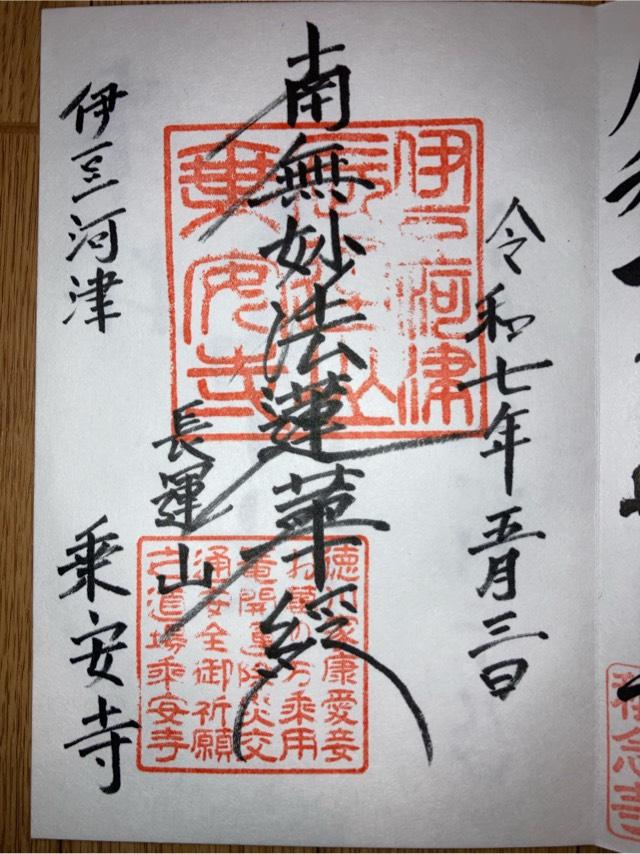 令和七年五月三日
南無妙法蓮華經
長運山
伊豆河津
乗安寺
伊豆河津
長運山
乗安寺
徳川家康愛妾
お萬の方乗用
開運除災交
通安全御祈願
之道場乗安寺